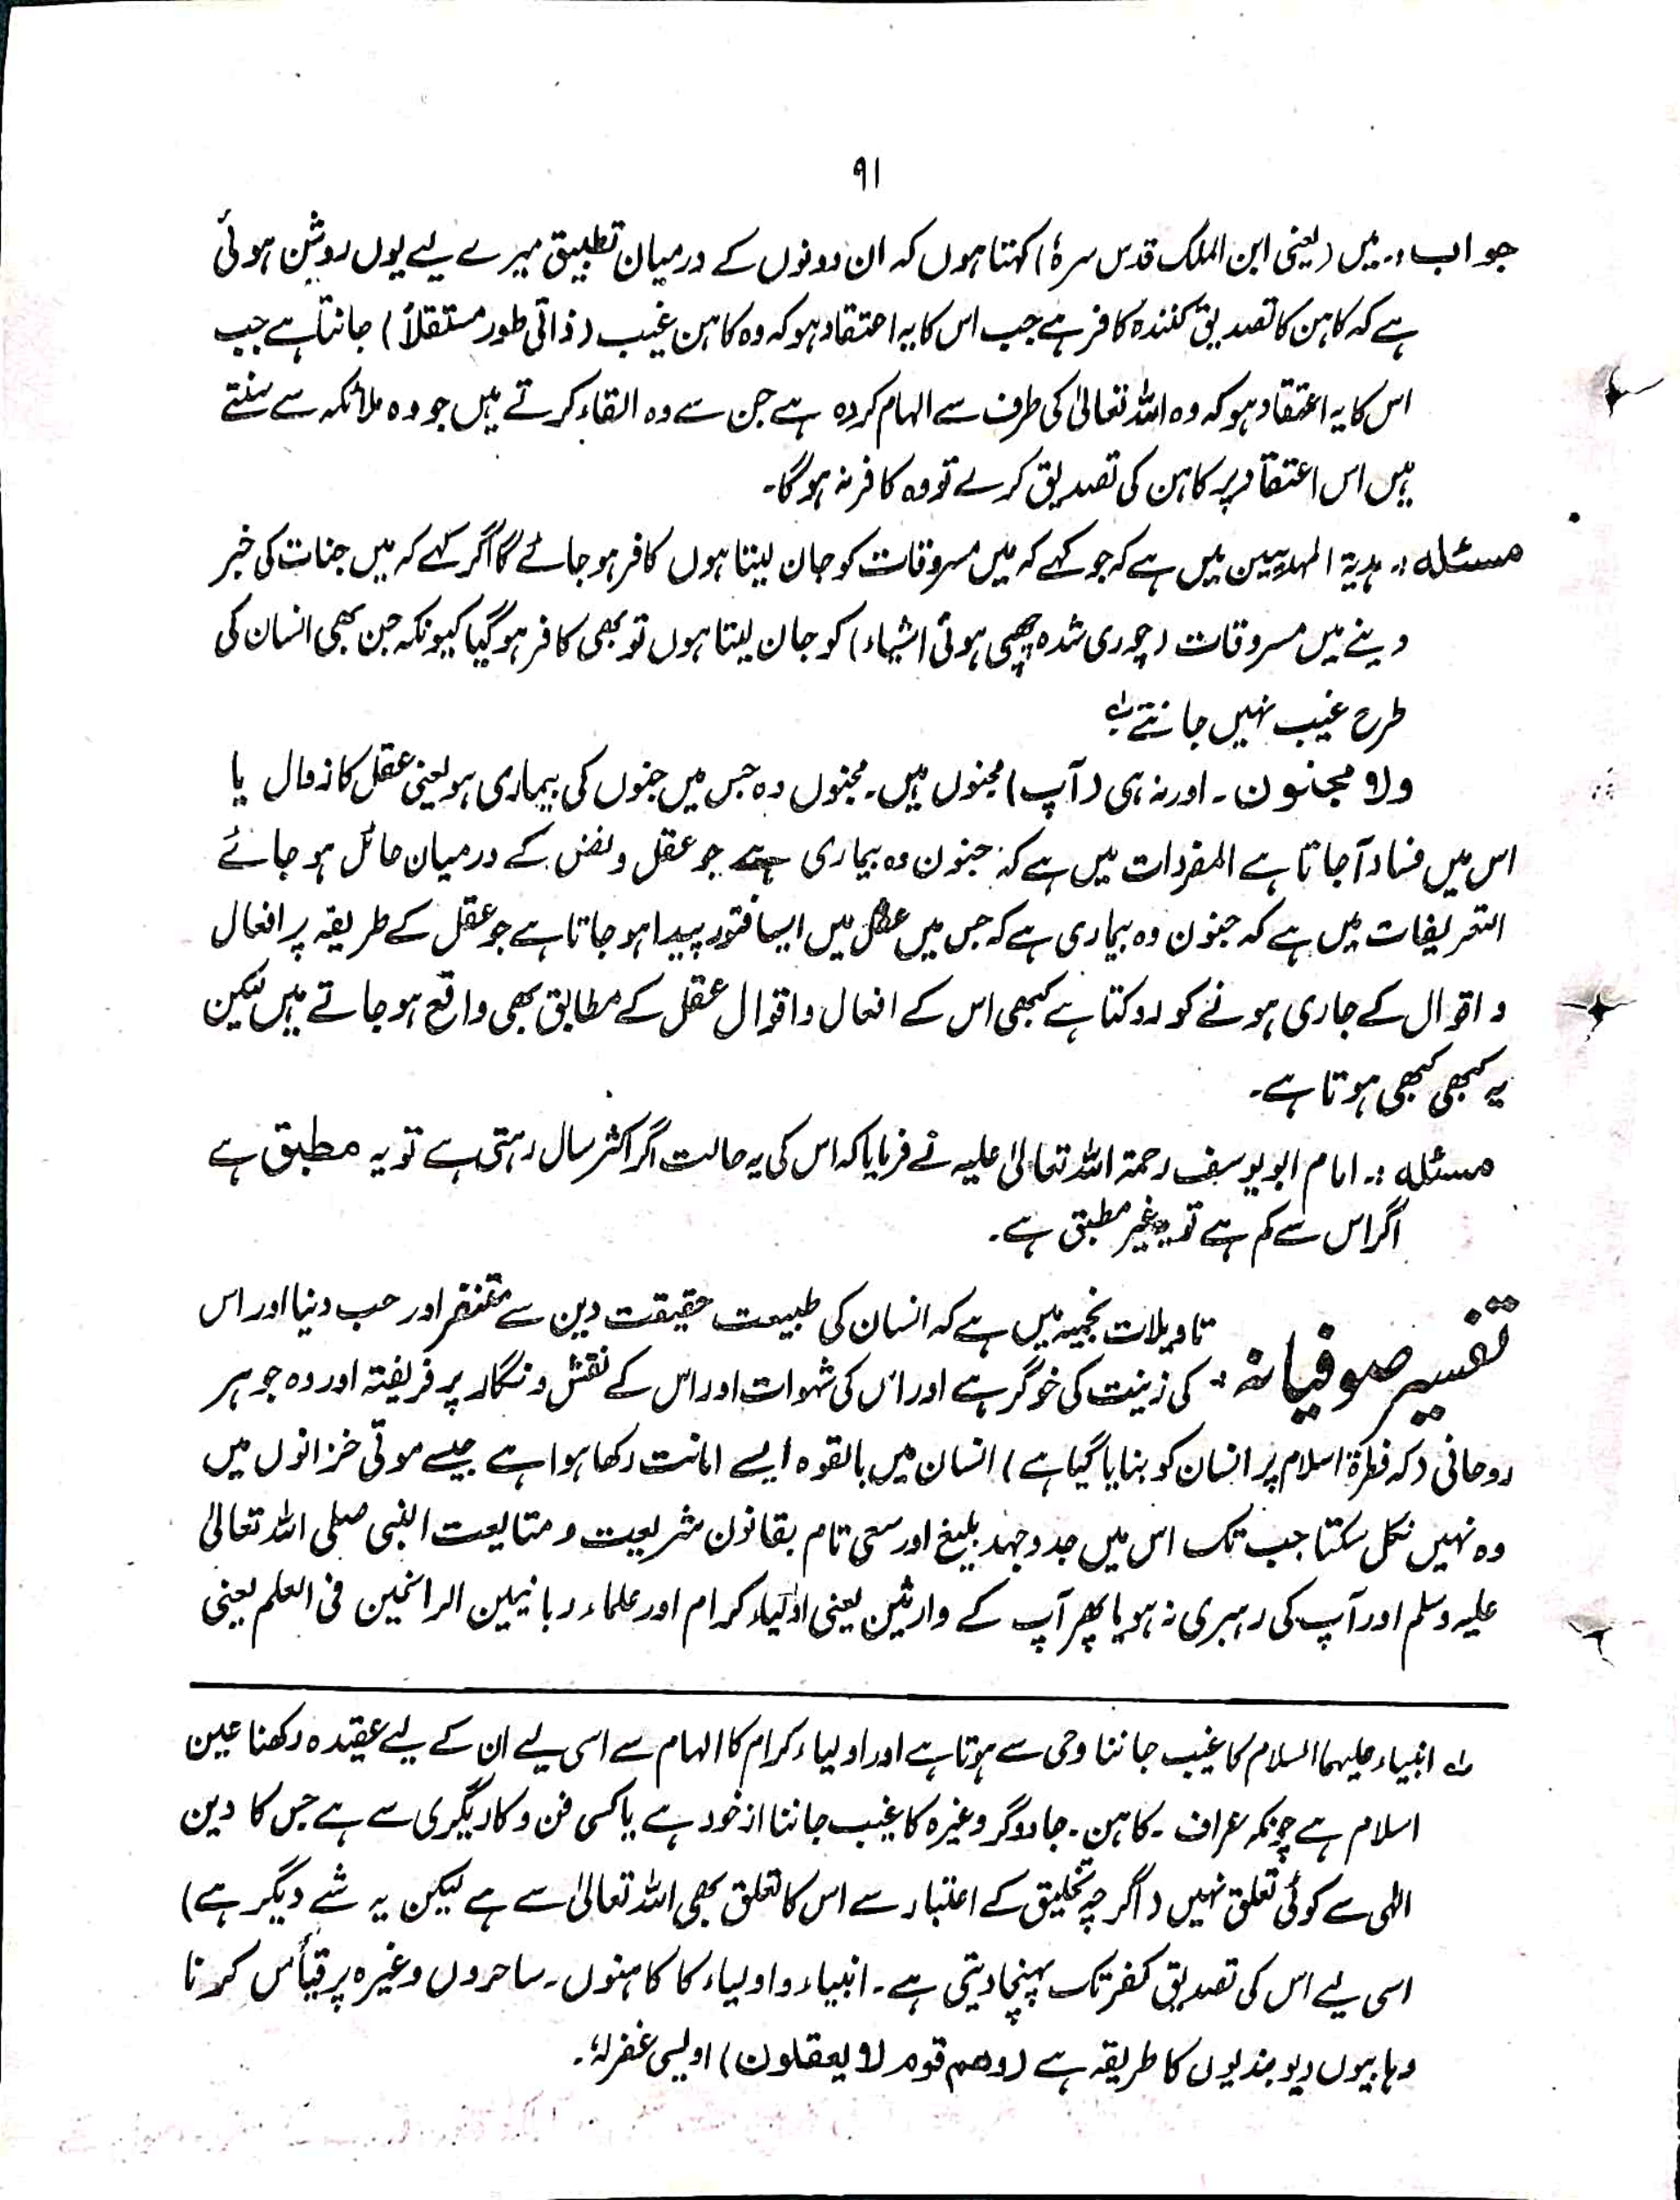 ۹۱
جواب :۔ میں (یعنی ابن الملک قدس سرہٗ) کہتا ہوں کہ ان دونوں کے درمیان تطبیق میرے لیے یوں روشن ہوئی
ہے کہ کاہن کا تصدیق کنندہ کافر ہے جب اس کا یہ اعتقاد ہو کہ وہ کاہن غیب (ذاتی طور مستقلاً) جانتا ہے جب
اس کا یہ اعتقاد ہو کہ وہ اللہ تعالیٰ کی طرف سے الہام کردہ ہے جن سے وہ القاء کرتے ہیں جو وہ ملائکہ سے سنتے
ہیں اس اعتقاد پر کاہن کی تصدیق کرے تو وہ کافر نہ ہوگا۔
مسئلہ :۔ ہدیۃ المہدیین میں ہے کہ جو کہے کہ میں مسروقات کو جان لیتا ہوں کافر ہو جائے گا اگر کہے کہ میں جنات کی خبر
دینے میں مسروقات (چوری شدہ چھپی ہوئی اشیاء) کو جان لیتا ہوں تو بھی کافر ہو گیا کیونکہ جن بھی انسان کی
طرح غیب نہیں جانتے ؎۱
ولا مجنون ۔ اور نہ ہی (آپ) مجنوں ہیں۔ مجنوں وہ جس میں جنوں کی بیماری ہو یعنی عقل کا زوال یا
اس میں فساد آجاتا ہے المفردات میں ہے کہ جنون وہ بیماری ہے جو عقل و نفس کے درمیان حائل ہو جائے
التعریفات میں ہے کہ جنون وہ بیماری ہے کہ جس میں عقل میں ایسا فتور پیدا ہو جاتا ہے جو عقل کے طریقہ پر افعال
و اقوال کے جاری ہونے کو روکتا ہے کبھی اس کے افعال و اقوال عقل کے مطابق بھی واقع ہو جاتے ہیں لیکن
یہ کبھی کبھی ہوتا ہے۔
مسئلہ :۔ امام ابو یوسف رحمۃ اللہ تعالیٰ علیہ نے فرمایا کہ اس کی یہ حالت اگر اکثر سال رہتی ہے تو یہ مطبق ہے
اگر اس سے کم ہے تو یہ غیر مطبق ہے۔
تفسیر صوفیانہ : تاویلات نجمیہ میں ہے کہ انسان کی طبیعت حقیقت دین سے متنفر اور حب دنیا اور اس
کی زینت کی خوگر ہے اور اس کی شہوات اور اس کے نقش و نگار پر فریفتہ اور وہ جوہر
روحانی (کہ فطرۃ اسلام پر انسان کو بنایا گیا ہے) انسان میں بالقوہ ایسے امانت رکھا ہوا ہے جیسے موتی خزانوں میں
وہ نہیں نکل سکتا جب تک اس میں جدوجہد بلیغ اور سعی تام بقانون شریعت و متابعت النبی صلی اللہ تعالیٰ
علیہ وسلم اور آپ کی رہبری نہ ہو یا پھر آپ کے وارثین یعنی اولیاء کرام اور علماء ربانیین الراسخین فی العلم یعنی
؎۱ انبیاء علیہما السلام کا غیب جاننا وحی سے ہوتا ہے اور اولیاء کرام کا الہام سے اسی لیے ان کے لیے عقیدہ رکھنا عین
اسلام ہے چونکہ عراف ۔ کاہن ۔ جادوگر وغیرہ کا غیب جاننا از خود ہے یا کسی فن و کاریگری سے ہے جس کا دین
الٰہی سے کوئی تعلق نہیں (اگرچہ تخلیق کے اعتبار سے اس کا تعلق بھی اللہ تعالیٰ سے ہے لیکن یہ شے دیگر ہے)
اسی لیے اس کی تصدیق کفر تک پہنچا دیتی ہے۔ انبیاء و اولیاء کا کاہنوں ۔ ساحروں وغیرہ پر قیاس کرنا
وہابیوں دیوبندیوں کا طریقہ ہے (وھم قوم لا یعقلون) اویسی غفرلہٗ۔